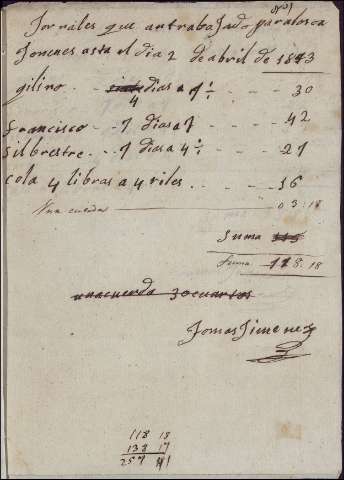 Nº 1
Jornales que an trabaJado para los ca
Jonenes asta el dia 2 de abril de 1843
gilino - siete dias a 7½ - - - 30
4
francisco - - 7 dias a 7 - - - 42
silbrestre - - 7 dias a 4½ - - - 27
cola 4 libras a 4 riles - - - 16
Una cuerda 03:18
Suma 115
Suma 118.18
una cuerda 30 cuartos
Tomas Jimenez
118 18
138 17
257 41